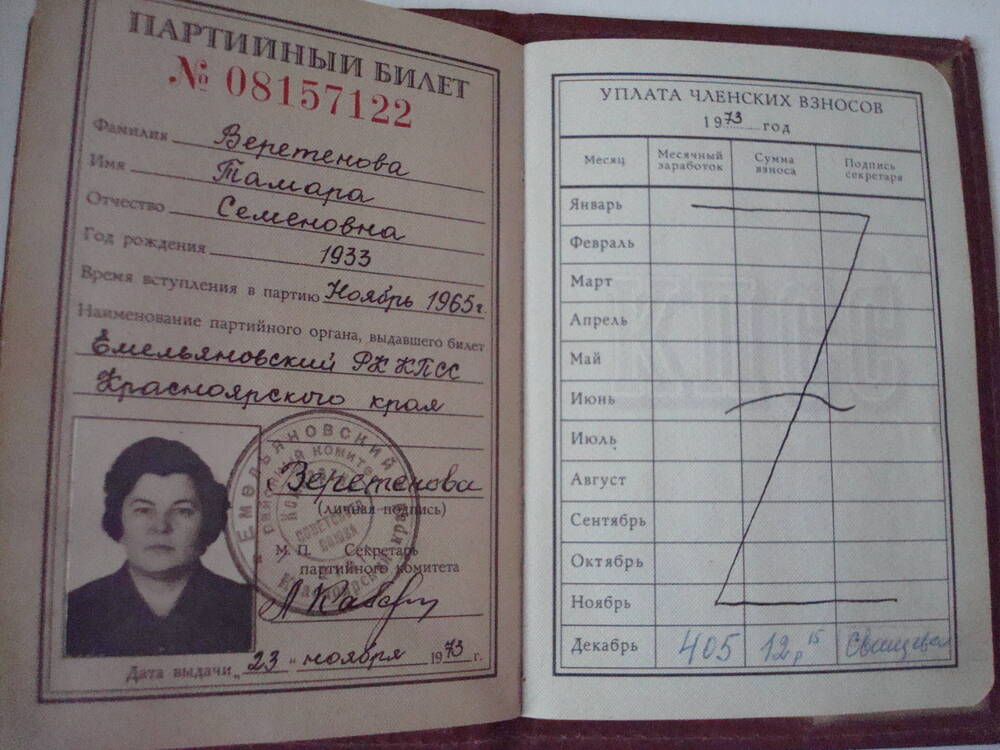 ПАРТИЙНЫЙ БИЛЕТ
№ 08157122
Фамилия Веретенова
Имя Тамара
Отчество Семеновна
Год рождения 1933
Время вступления в партию Ноябрь 1965 г.
Наименование партийного органа, выдавшего билет
Емельяновский РК КПСС
Красноярского края
Веретенова
(личная подпись)
М. П. Секретарь
партийного комитета
Дата выдачи „23" ноября 1973 г.
УПЛАТА ЧЛЕНСКИХ ВЗНОСОВ
1973 год
Месяц Месячный заработок Сумма взноса Подпись секретаря
Январь
Февраль
Март
Апрель
Май
Июнь
Июль
Август
Сентябрь
Октябрь
Ноябрь
Декабрь 405 12р 15